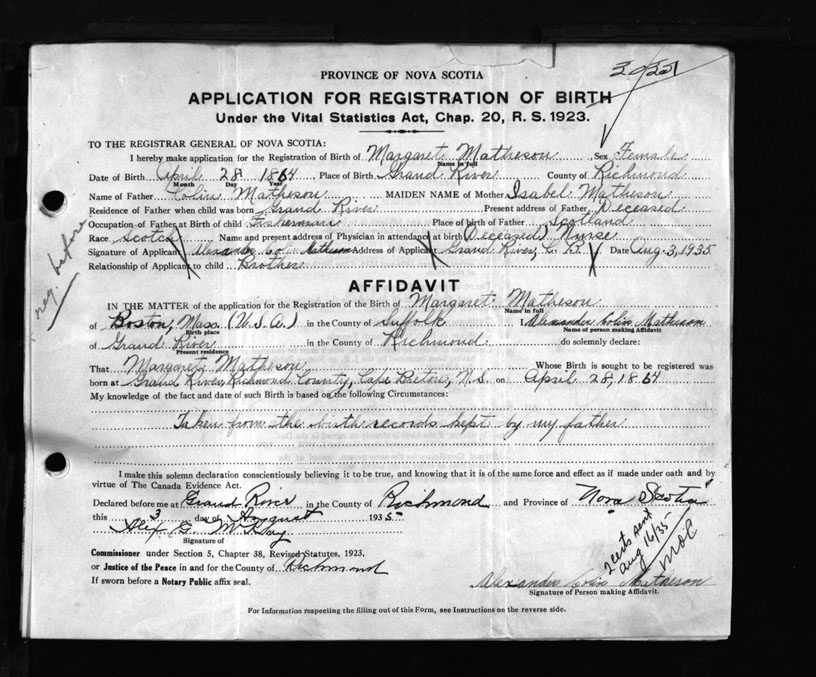 PROVINCE OF NOVA SCOTIA
APPLICATION FOR REGISTRATION OF BIRTH
Under the Vital Statistics Act, Chap. 20, R. S. 1923.
TO THE REGISTRAR GENERAL OF NOVA SCOTIA:
I hereby make application for the Registration of Birth of Margaret Matheson Sex Female
Name in full
Date of Birth April 28 1864, Place of Birth Grand River County of Richmond
Month Day Year
Name of Father Colin Matheson MAIDEN NAME of Mother Isabel Matheson
Residence of Father when child was born Grand River Present address of Father Deceased
Occupation of Father at Birth of child Fisherman Place of birth of Father Scotland
Race Scotch Name and present address of Physician in attendance at birth (Deceased) Nurse
Signature of Applicant Alexander Colin Matheson Address of Applicant Grand River, C. B. Date Aug. 3, 1935
Relationship of Applicant to child Brother
reg. before
AFFIDAVIT
IN THE MATTER of the application for the Registration of the Birth of Margaret Matheson
Name in full
of Boston, Mass. (U.S.A.) in the County of Suffolk I Alexander Colin Matheson
Birth place Name of person making Affidavit
of Grand River in the County of Richmond do solemnly declare:
Present residence
That Margaret Matheson Whose Birth is sought to be registered was
born at Grand River, Richmond County, Cape Breton, N.S. on April 28, 1864
My knowledge of the fact and date of such Birth is based on the following Circumstances:
Taken from the birth records kept by my father
I make this solemn declaration conscientiously believing it to be true, and knowing that it is of the same force and effect as if made under oath and by
virtue of The Canada Evidence Act.
Declared before me at Grand River in the County of Richmond and Province of Nova Scotia
this 3 day of August 1935
Alex G. McKay
Signature of
Commissioner under Section 5, Chapter 38, Revised Statutes, 1923,
or Justice of the Peace in and for the County of Richmond
If sworn before a Notary Public affix seal.
2 certs sent
Aug 16/35
Alexander Colin Matheson
Signature of Person making Affidavit.
For Information respecting the filling out of this Form, see Instructions on the reverse side.